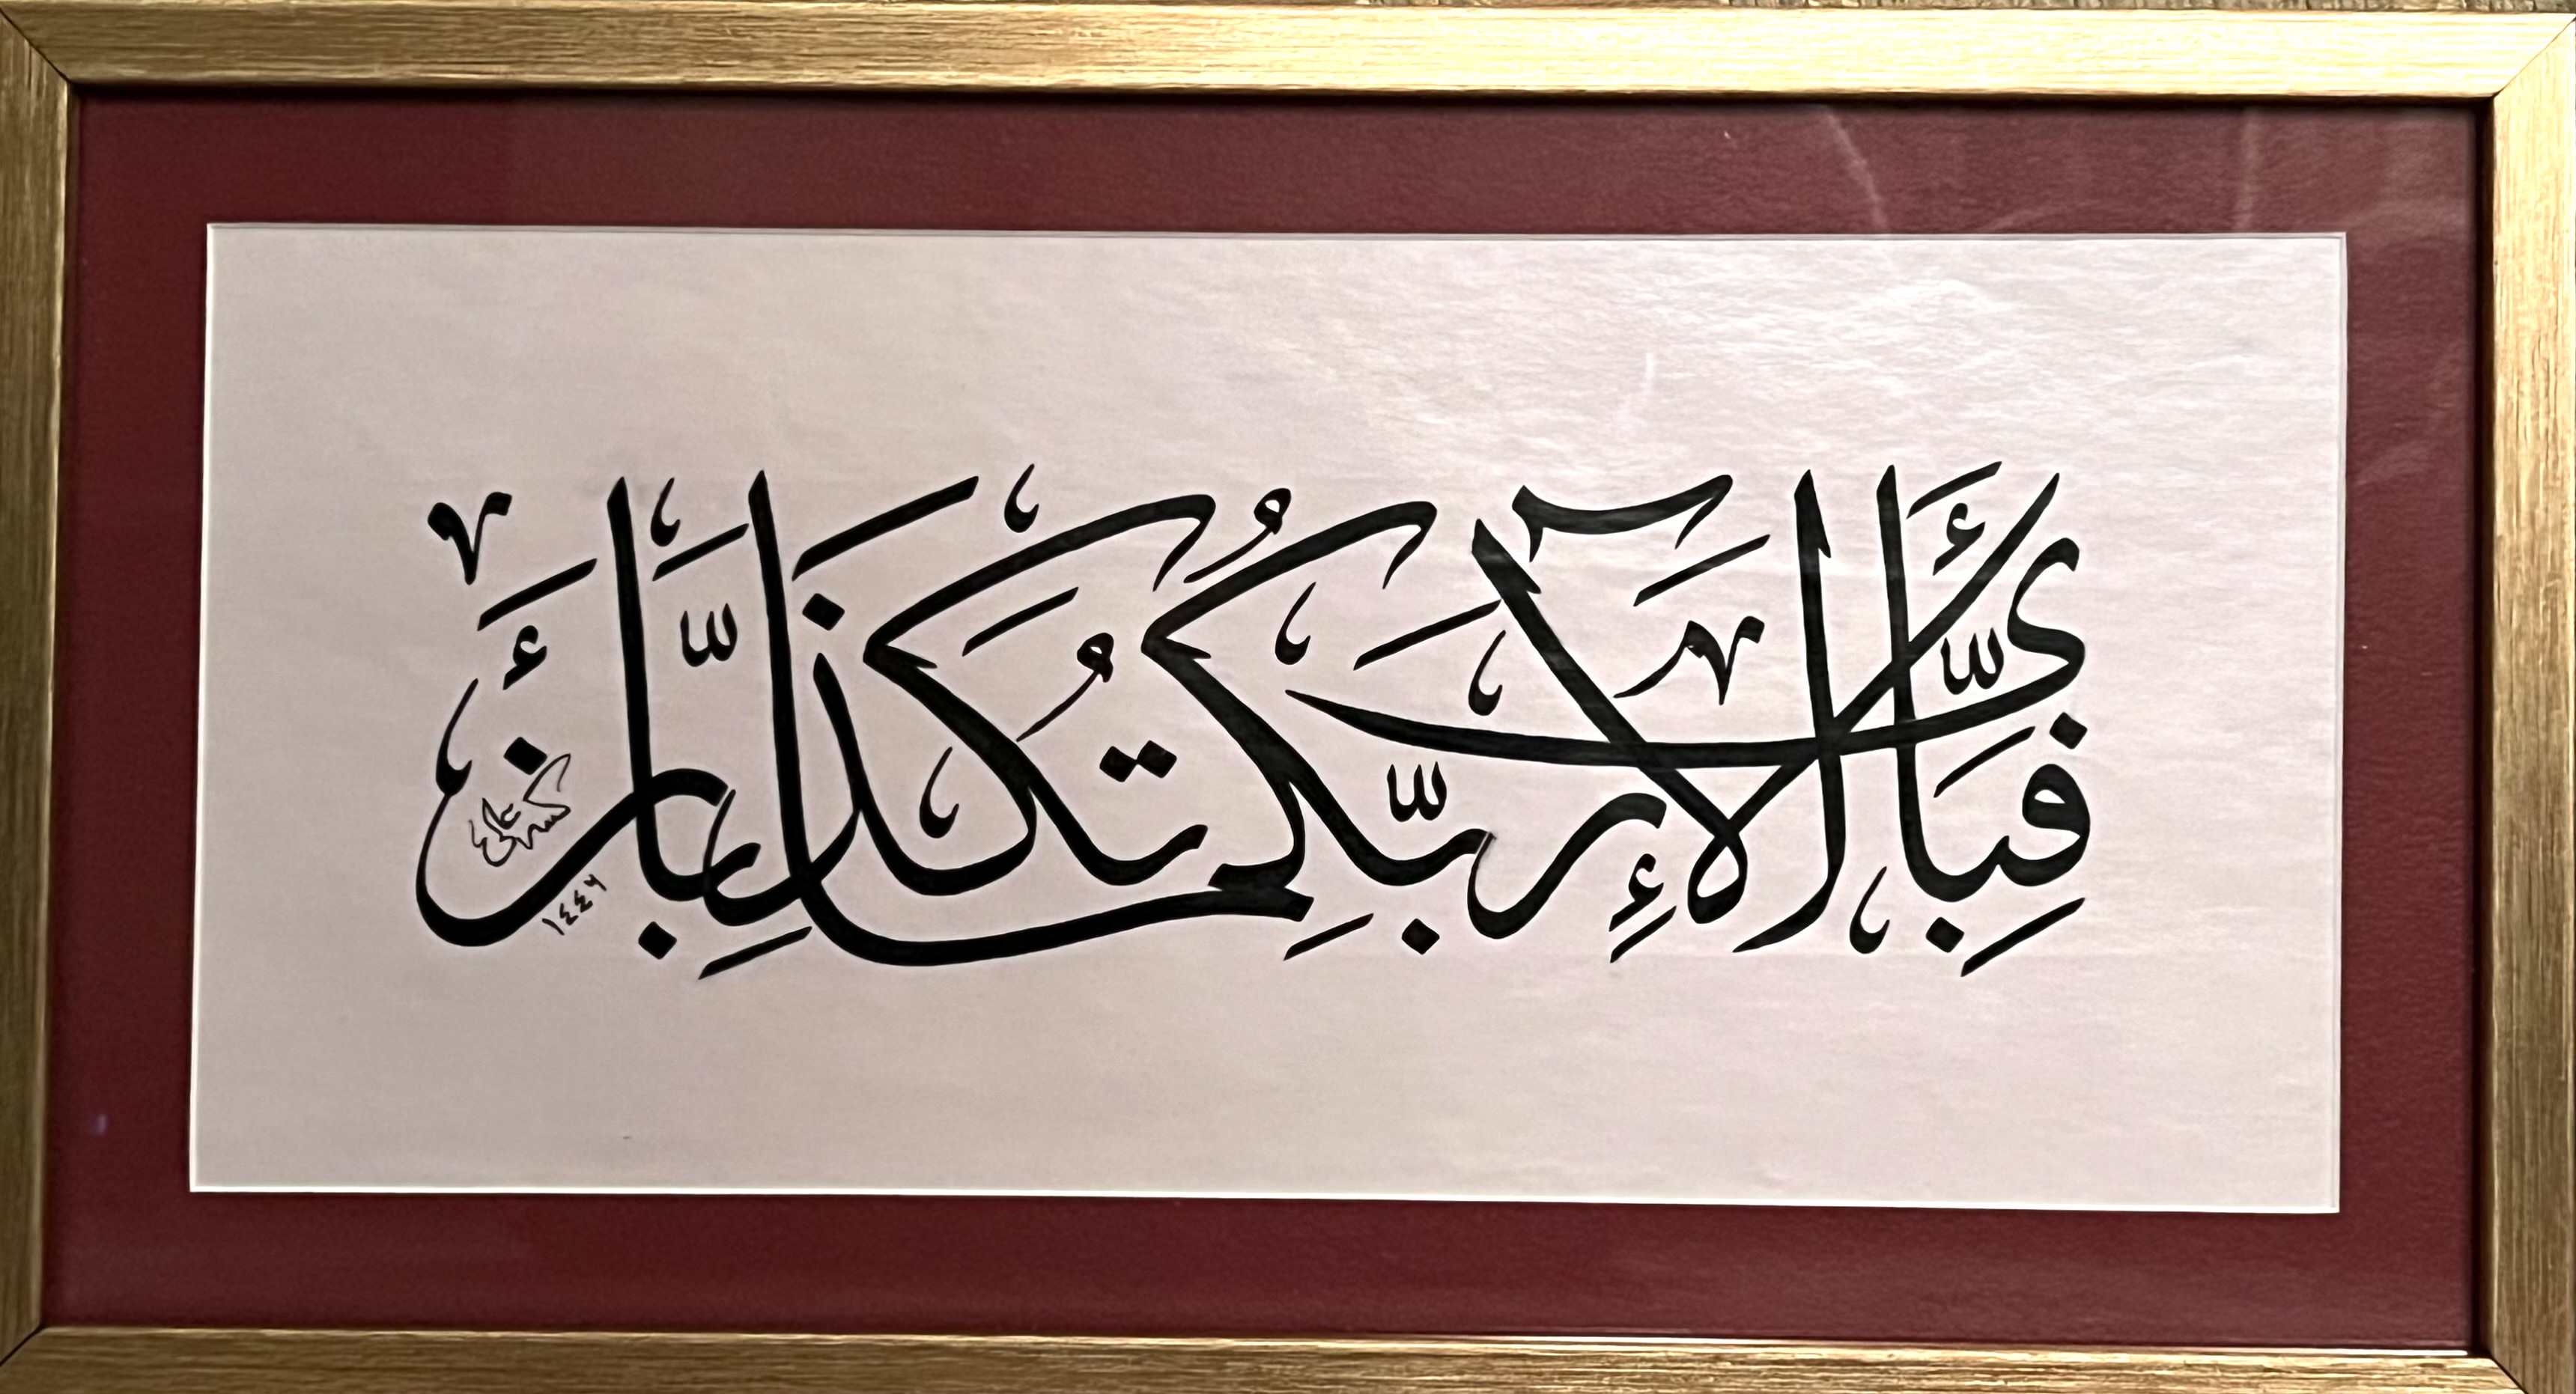 فَبِأَيِّ آلَاءِ رَبِّكُمَا تُكَذِّبَانِ
١٤٤٦